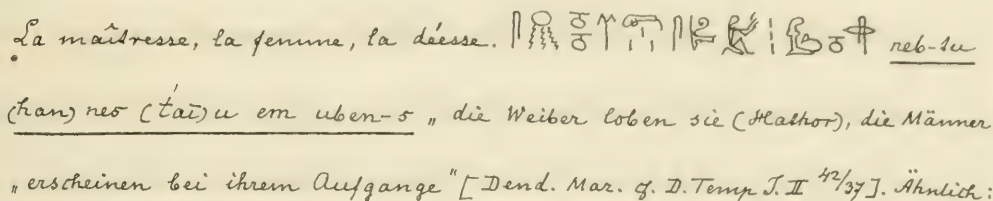 La maîtresse, la femme, la déesse. neb-tu
(han) nes (t'aï)u em uben-s „ die Weiber loben sie (Hathor), die Männer
„ erscheinen bei ihrem Aufgange" [Dend. Mar. q. D. Temp J. II 42/37]. Ähnlich: